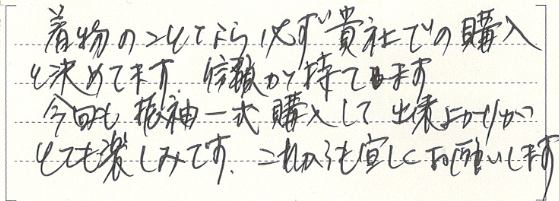 着物のことでしたら必ず貴社での購入
と決めてます。信頼が持てます
今回も振袖一式購入して出来上がりが
とても楽しみです。これからも宜しくお願いします